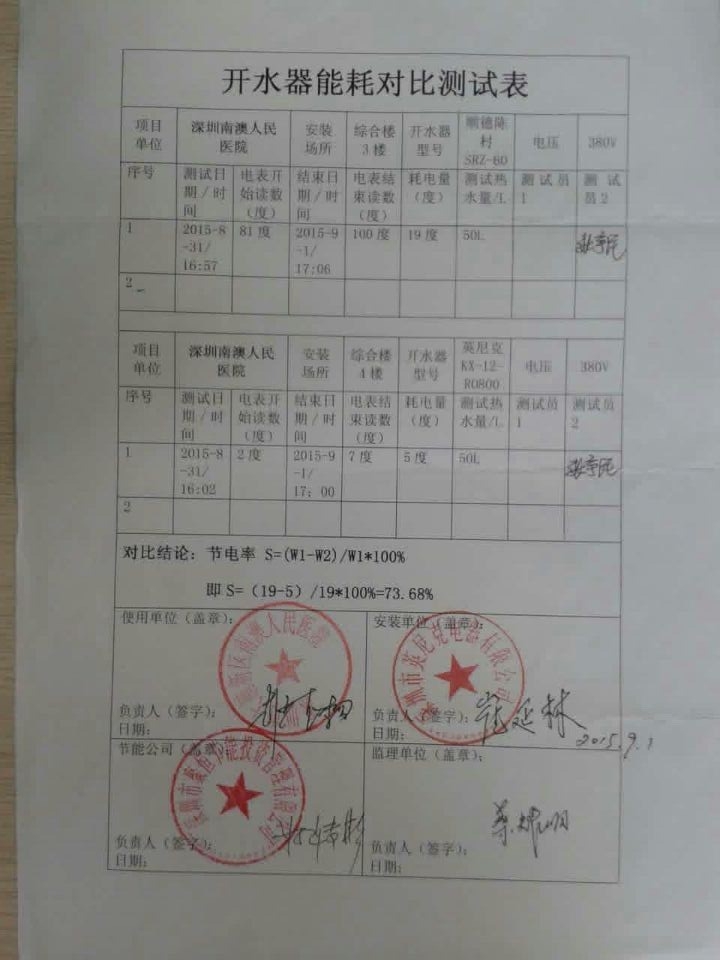 开水器能耗对比测试表
项目单位 深圳南澳人民医院 安装场所 综合楼3楼 开水器型号 顺德陈村SRZ-60 电压 380V
序号 测试日期/时间 电表开始读数（度） 结束日期/时间 电表结束读数（度） 耗电量（度） 测试热水量/L 测试员1 测试员2
1 2015-8-31/16:57 81度 2015-9-1/17:06 100度 19度 50L
2
项目单位 深圳南澳人民医院 安装场所 综合楼4楼 开水器型号 英尼克KX-12-RO800 电压 380V
序号 测试日期/时间 电表开始读数（度） 结束日期/时间 电表结束读数（度） 耗电量（度） 测试热水量/L 测试员1 测试员2
1 2015-8-31/16:02 2度 2015-9-1/17:00 7度 5度 50L
2
对比结论：节电率 S=(W1-W2)/W1*100%
即S=（19-5）/19*100%=73.68%
使用单位（盖章）： 安装单位（盖章）：
区南澳人民医院
市英尼克电器有限公司
负责人（签字）： 负责人（签字）：
日期： 日期： 2015.9.1
节能公司（盖章）： 监理单位（盖章）：
节能投资管理有限公司
负责人（签字）： 负责人（签字）：
日期： 日期：